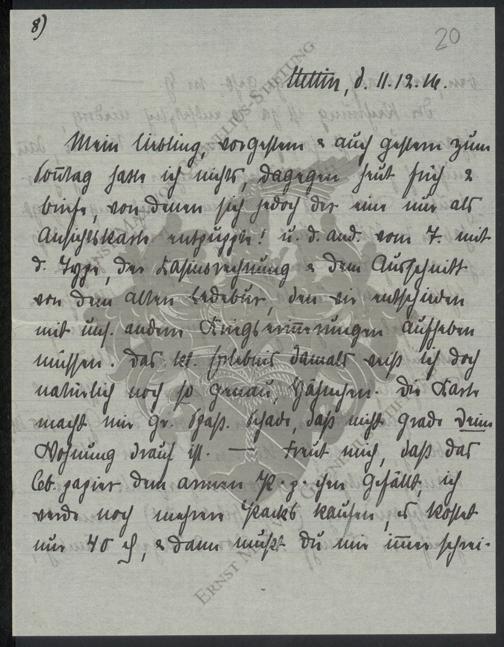 8)
20
Stettin, d. 11.12.16.
Mein Liebling, vorgestern & auch gestern zum
Sonntag hatte ich nichts, dagegen heut früh 2
Briefe, von denen sich jedoch der eine nur als
Ansichtskarte entpuppte! u. d. and. vom 7. mit
d. Type, der Kasinorechnung & dem Ausschnitt
von dem alten Ledebur, den wir entschieden
mit uns. andern Kriegserinnerungen aufheben
müssen. Das Erlebnis damals weiß ich doch
natürlich noch so genau, Die Karte
macht mir gr. Spaß. Schade, daß nicht grade Deine
Wohnung drauf ist. — Freut mich, daß das
papier dem armen gefällt, ich
werde noch mehrere Packs kaufen, es kostet
nur 40 ₰, & dann mußt Du mir immer schrei-
ERNST
STIFTUNG